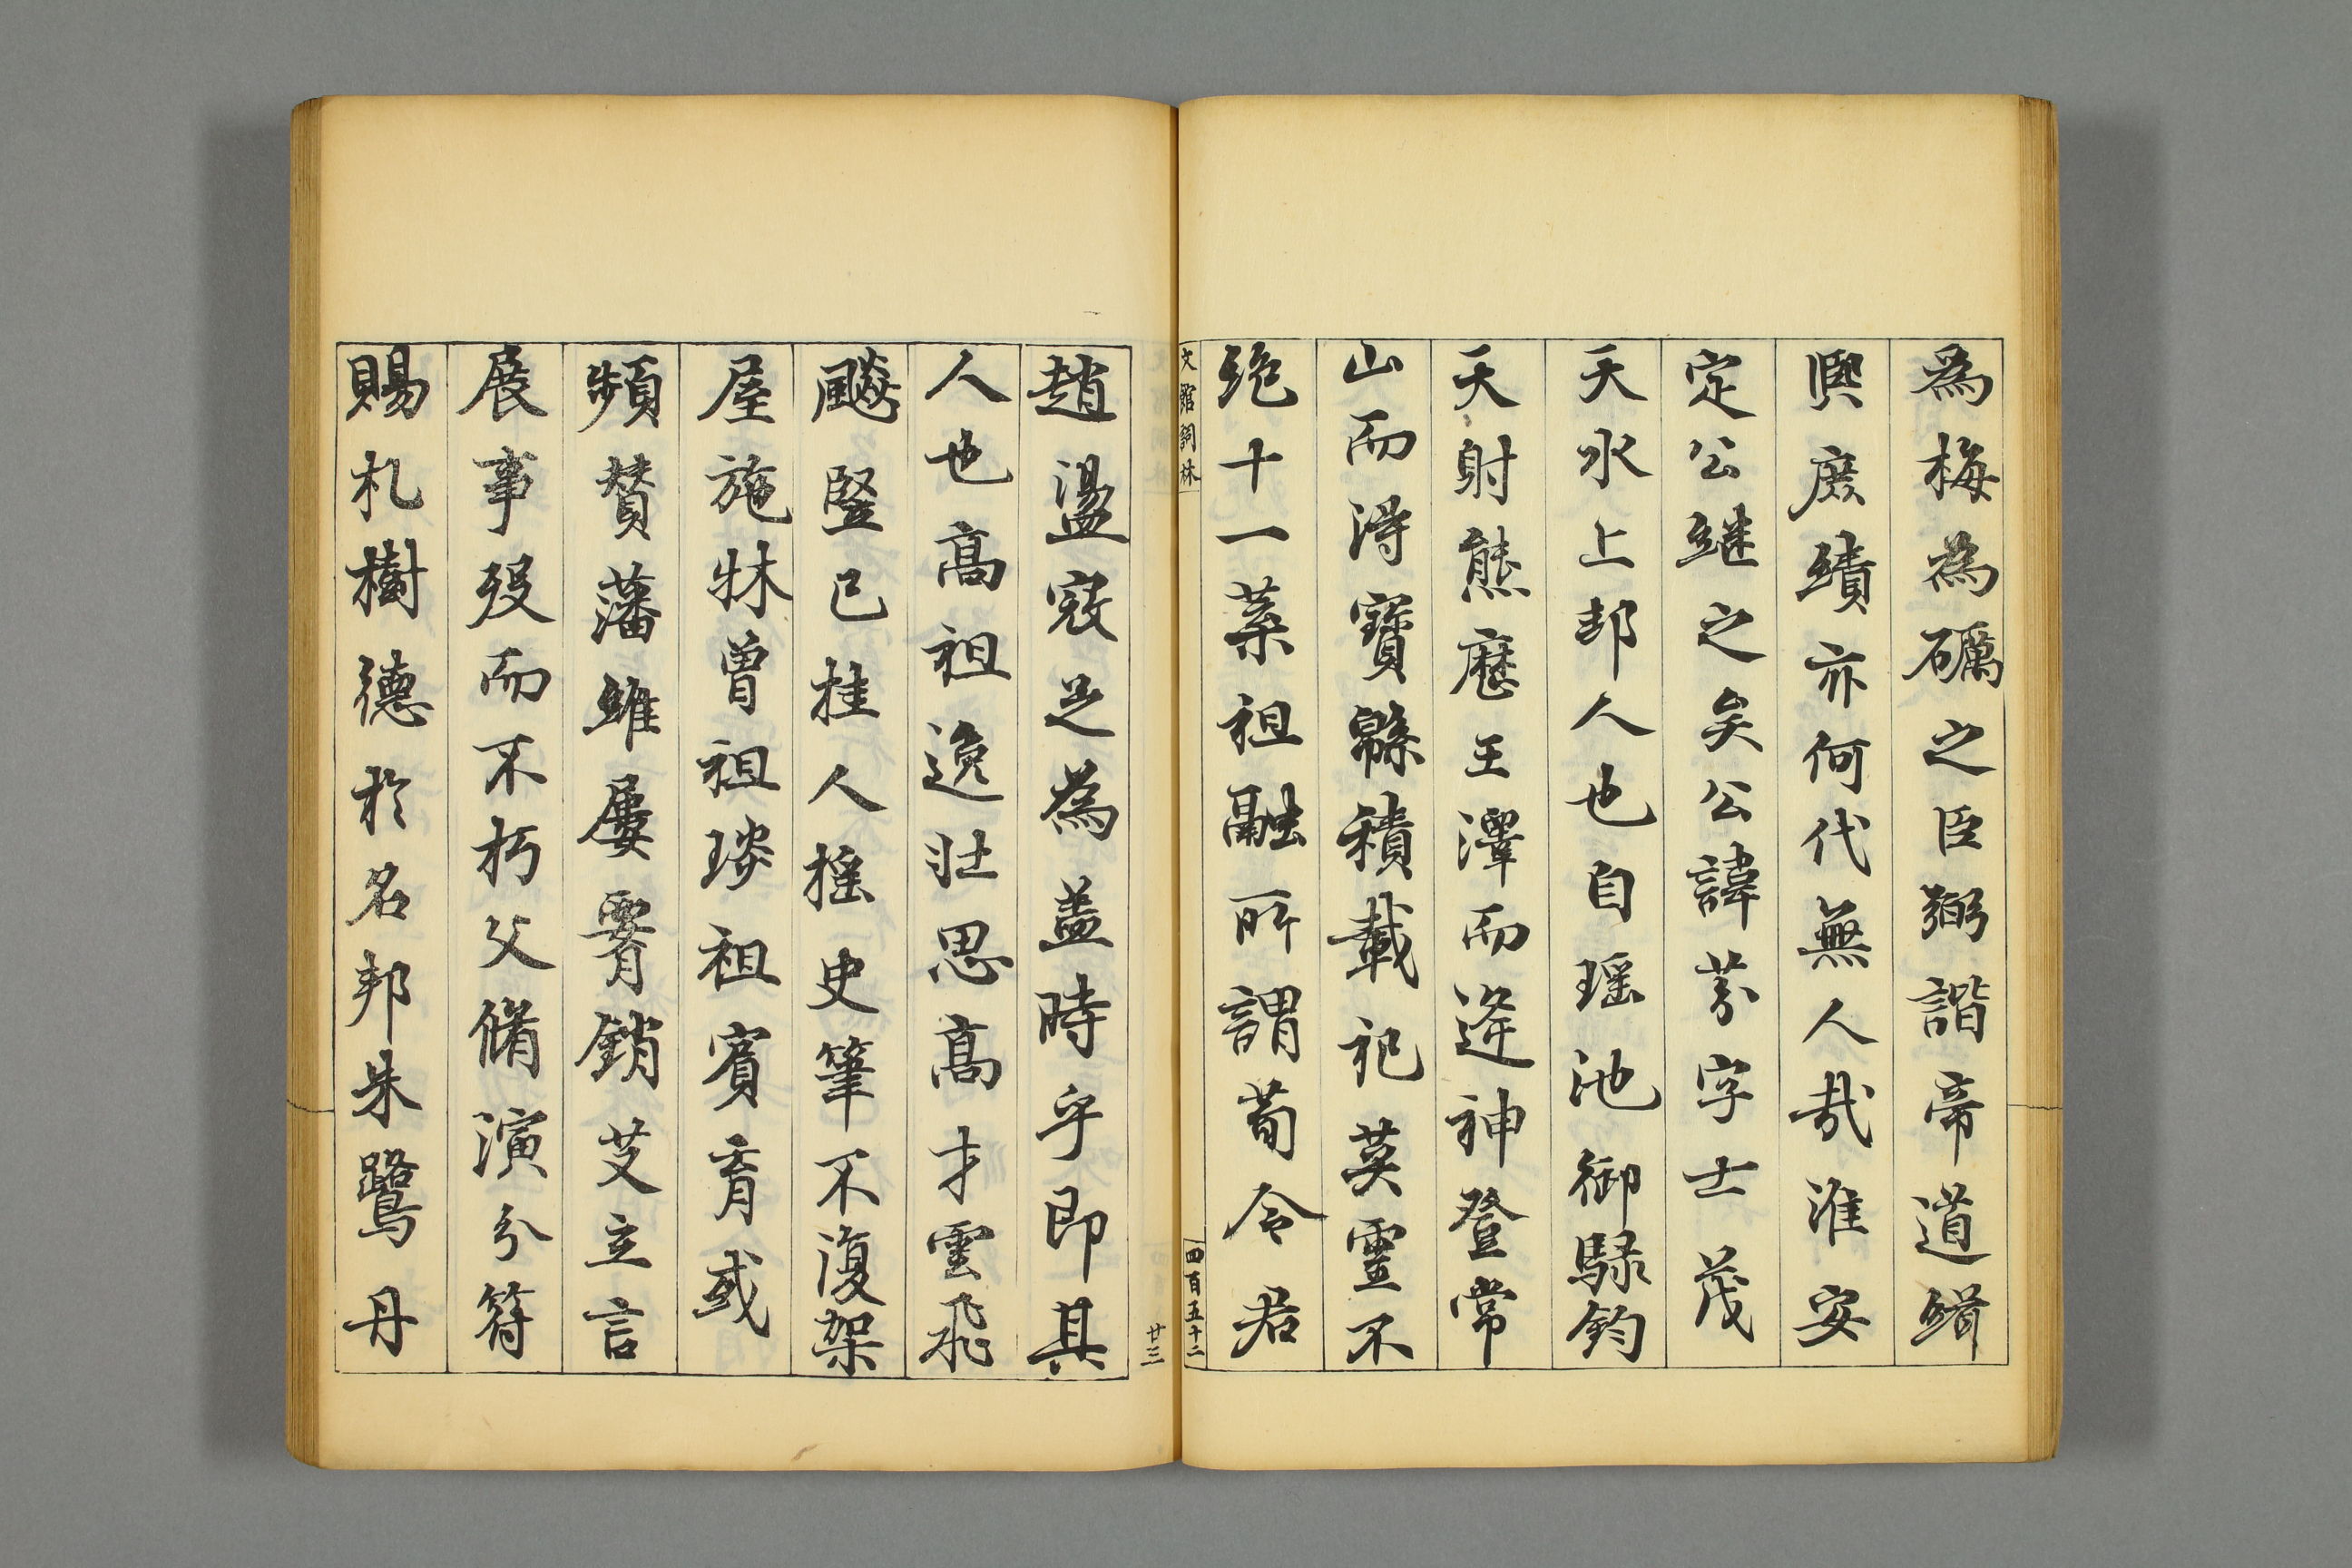 為梅為礪之臣弼諧帝道緝
熙庶績亦何代無人哉淮安
定公继之矣公諱芬字士茂
天水上邽人也自瑶池御騄鈞
天射熊歷王澤而逢神登常
山而得寶緜積載祀英靈不
絶十一葉祖融所謂荀令君
文館詞林
四百五十二
廿三
趙盪寇足為蓋時乎即其
人也高祖逸壯思高才雲飛
飈竪已挂人摇史筆不復架
屋施牀曾祖琰祖賓育或
頻賛藩維屢膺銷芟立言
展事殁而不朽父脩演分符
賜札樹德於名邦朱鷺丹